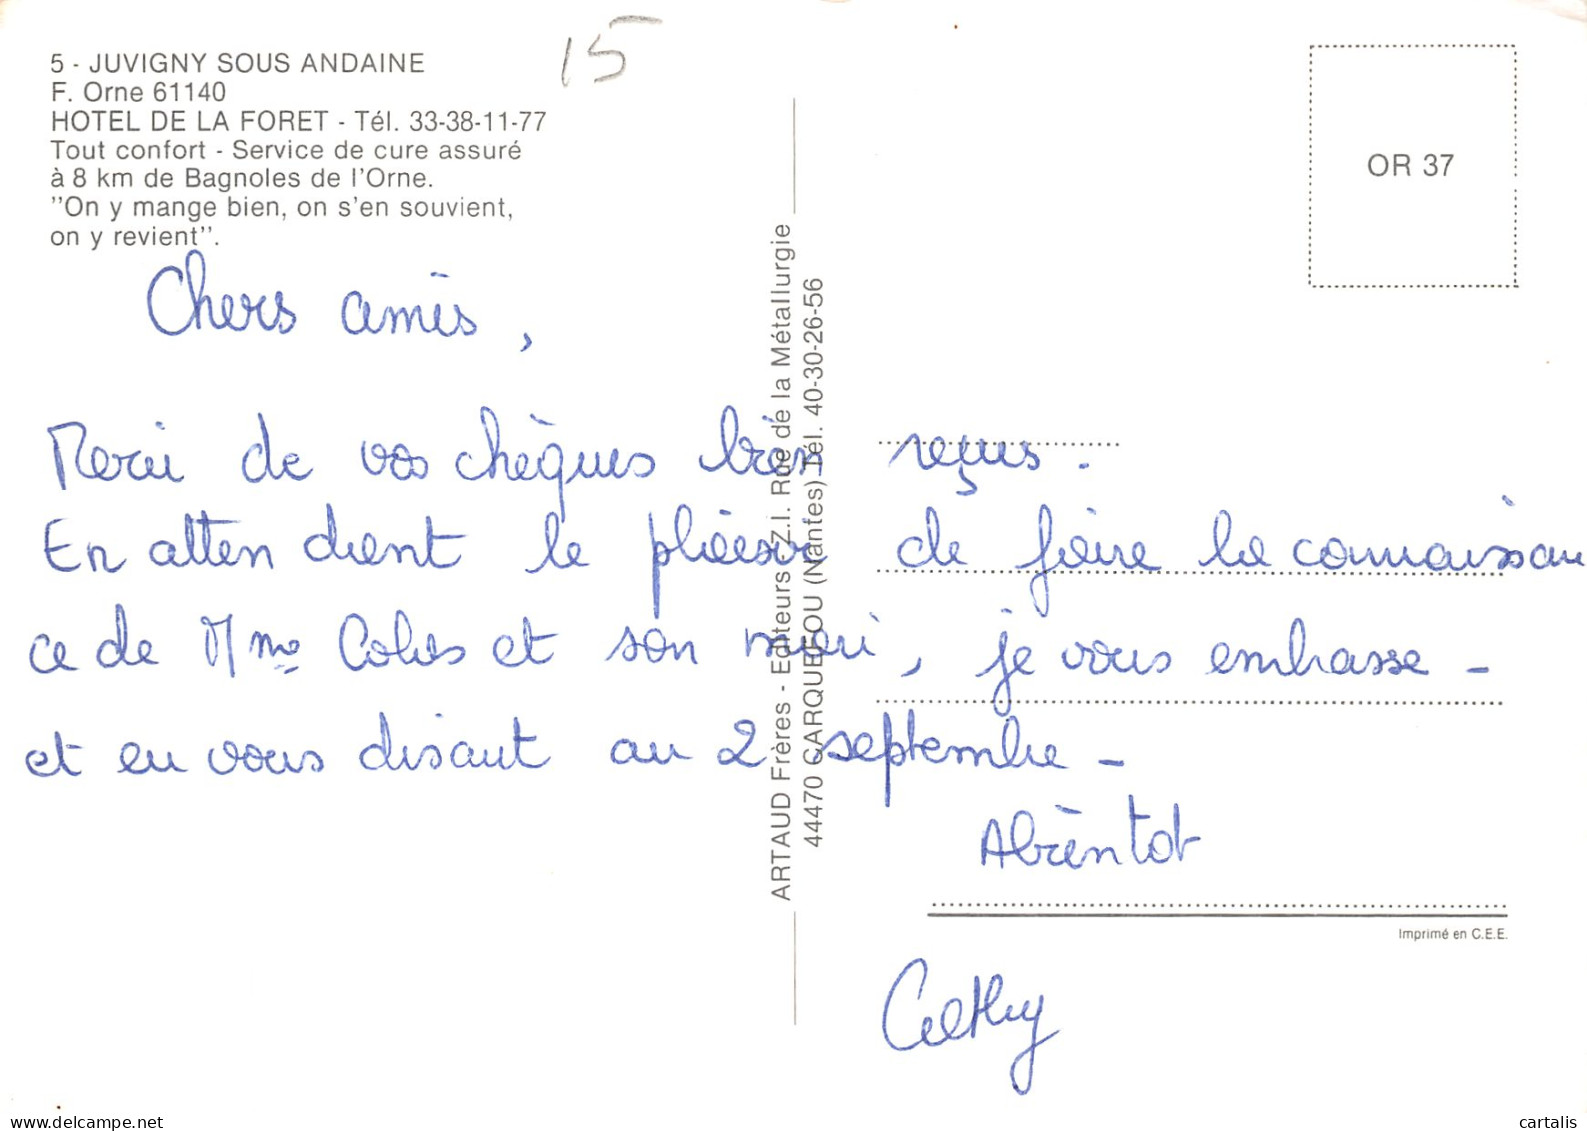 15
5 - JUVIGNY SOUS ANDAINE
F. Orne 61140
HOTEL DE LA FORET - Tél. 33-38-11-77
Tout confort - Service de cure assuré
à 8 km de Bagnoles de l'Orne.
"On y mange bien, on s'en souvient,
on y revient".
OR 37
Chers amis,
Merci de vos chèques bien reçus.
En attendant le plaisir de faire la connaissan
ce de Mme et son mari, je vous embrasse -
et en vous disant au 2 septembre -
A bientôt
Cathy
ARTAUD Frères - Editeurs Z.I. Rue de la Métallurgie
44470 CARQUEFOU (Nantes) Tél. 40-30-26-56
Imprimé en C.E.E.
delcampe.net
cartalis